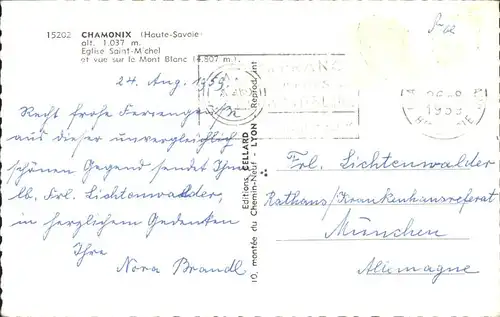 15202 CHAMONIX (Haute-Savoie)
alt. 1.037 m.
Eglise Saint-Michel
et vue sur le Mont Blanc (4.807 m.)
24. Aug. 1959.
Recht frohe Feriengrüße
aus dieser unvergleichlich
schönen Gegend sendet Ihnen
lb. Frl. Lichtenwalder,
in herzlichem Gedenken
Ihre
Nora Brandl
Editions CELLARD
10, montée du Chemin-Neuf - LYON - Reprod. int
1959
Frl. Lichtenwalder
Rathaus/Krankenhausreferat
München
Allemagne